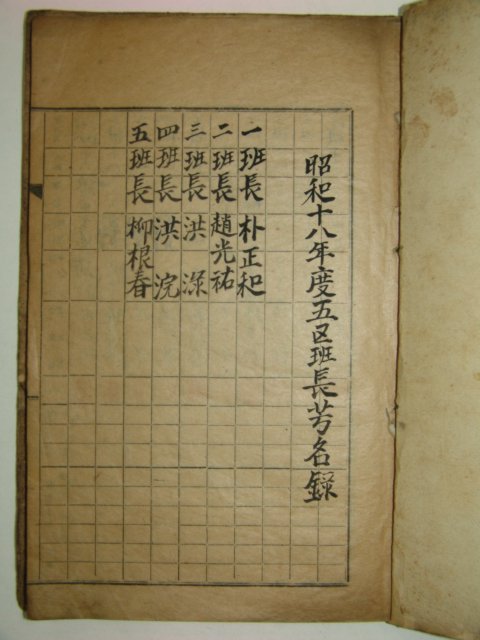 昭和十八年度五区班長芳名録
一班長 朴正和
二班長 趙光祐
三班長 洪深
四班長 洪浣
五班長 柳根春